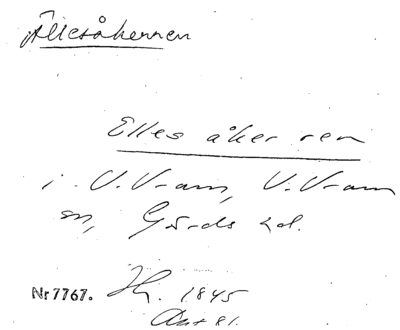 Ällesåkerren
Elles åker ren
i V. Vram, V. Vram
sn, Gärds hd.
Nr 7767. Hy. 1845
Akt 81.